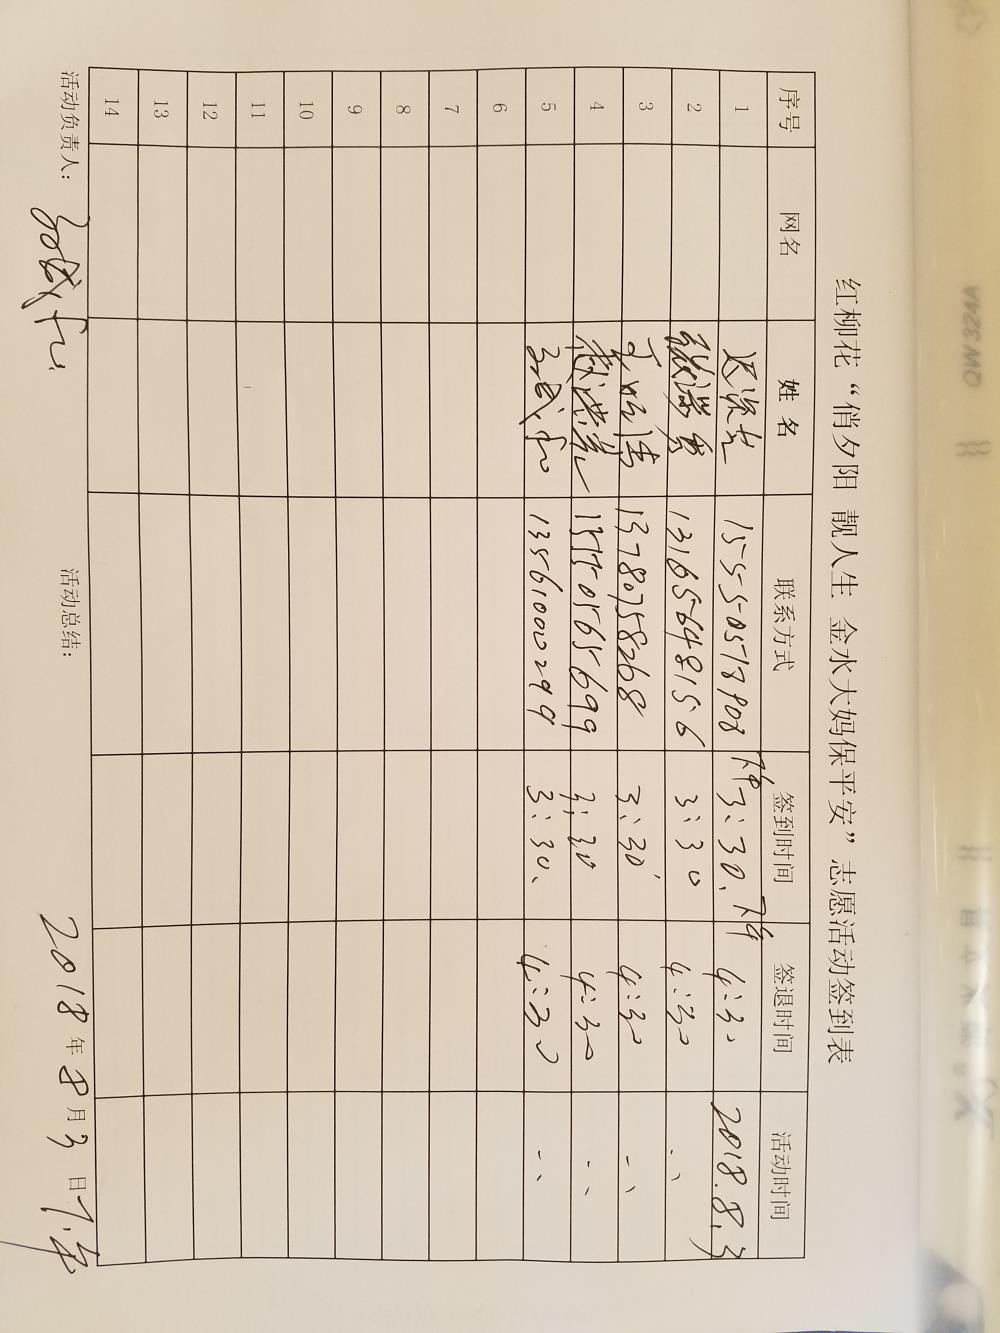 红柳花“俏夕阳 靓人生 金水大妈保平安”志愿活动签到表
序号 网名 姓名 联系方式 签到时间 签退时间 活动时间
1 下午3:30. 下午4:30 2018.8.3
2 13165648156 3:30 4:30 〃
3 13780758268 3:30 4:30 〃
4 15550565699 3:30 4:30 〃
5 13561000299 3:30. 4:30 〃
6
7
8
9
10
11
12
13
14
活动负责人: 活动总结: 2018年8月3日下午